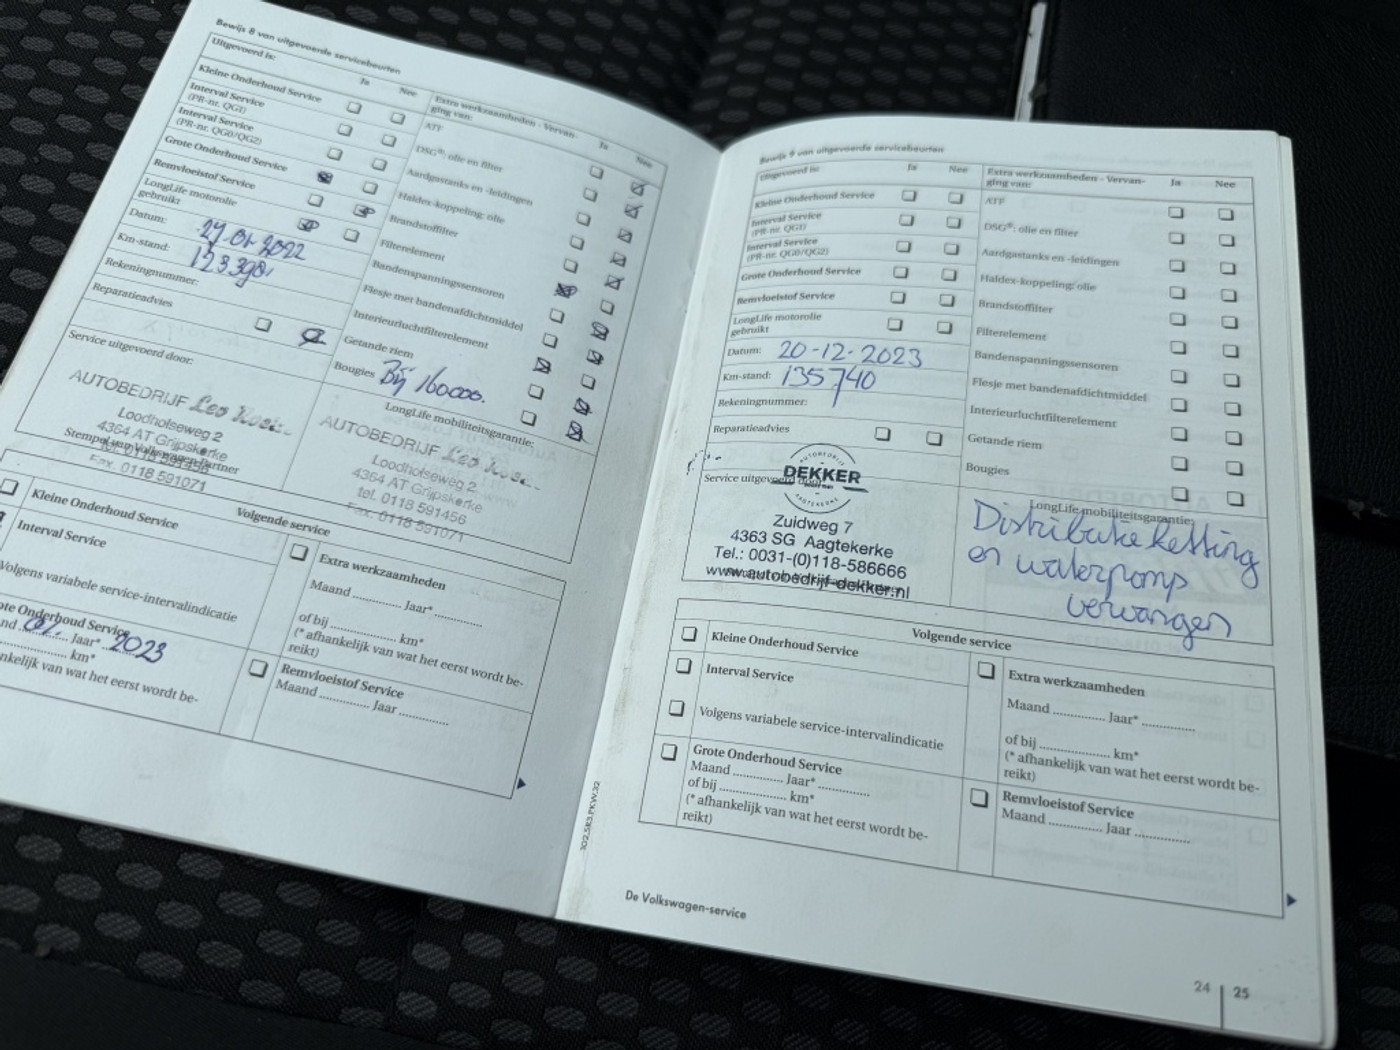 Bewijs 8 van uitgevoerde servicebeurten
Uitgevoerd is:
Ja
Nee
Kleine Onderhoud Service
Interval Service
(PR-nr. QG1)
Interval Service
(PR-nr. QG0/QG2)
Grote Onderhoud Service
Remvloeistof Service
LongLife motorolie
gebruikt
Datum:
Km-stand:
123390
Rekeningnummer:
Reparatieadvies
Extra werkzaamheden - Vervan-
ging van:
Ja
Nee
ATF
DSG®: olie en filter
Aardgastanks en -leidingen
Haldex-koppeling: olie
Brandstoffilter
Filterelement
Bandenspanningssensoren
Flesje met bandenafdichtmiddel
Interieurluchtfilterelement
Getande riem
Bougies Bij 160000.
Service uitgevoerd door:
AUTOBEDRIJF
Loodholseweg 2
4364 AT Grijpskerke
Tel. 0118 591456
Fax. 0118 591071
Stempel van Volkswagen Partner
LongLife mobiliteitsgarantie:
AUTOBEDRIJF
Loodholseweg 2
4364 AT Grijpskerke
tel. 0118 591456
Fax. 0118 591071
Volgende service
Kleine Onderhoud Service
Interval Service
Volgens variabele service-intervalindicatie
ote Onderhoud Service
nd 01. Jaar* 2023
km*
nkelijk van wat het eerst wordt be-
Extra werkzaamheden
Maand ............. Jaar* .............
of bij .................... km*
(* afhankelijk van wat het eerst wordt be-
reikt)
Remvloeistof Service
Maand ............. Jaar ...............
Bewijs 9 van uitgevoerde servicebeurten
Uitgevoerd is:
Ja
Nee
Kleine Onderhoud Service
Interval Service
(PR-nr. QG1)
Interval Service
(PR-nr. QG0/QG2)
Grote Onderhoud Service
Remvloeistof Service
LongLife motorolie
gebruikt
Datum: 20-12-2023
Km-stand: 135740
Rekeningnummer:
Reparatieadvies
Extra werkzaamheden - Vervan-
ging van:
Ja
Nee
ATF
DSG®: olie en filter
Aardgastanks en -leidingen
Haldex-koppeling: olie
Brandstoffilter
Filterelement
Bandenspanningssensoren
Flesje met bandenafdichtmiddel
Interieurluchtfilterelement
Getande riem
Bougies
Service uitgevoerd door:
AUTOBEDRIJF
DEKKER
AAGTEKERKE
Zuidweg 7
4363 SG Aagtekerke
Tel.: 0031-(0)118-586666
www.autobedrijf-dekker.nl
LongLife mobiliteitsgarantie:
Distributie ketting
en waterpomp
vervangen
Volgende service
Kleine Onderhoud Service
Interval Service
Volgens variabele service-intervalindicatie
Grote Onderhoud Service
Maand ............. Jaar* .............
of bij .................... km*
(* afhankelijk van wat het eerst wordt be-
reikt)
Extra werkzaamheden
Maand ............. Jaar* .............
of bij .................... km*
(* afhankelijk van wat het eerst wordt be-
reikt)
Remvloeistof Service
Maand ............. Jaar ...............
102.5R3.PKW.32
De Volkswagen-service
24 | 25